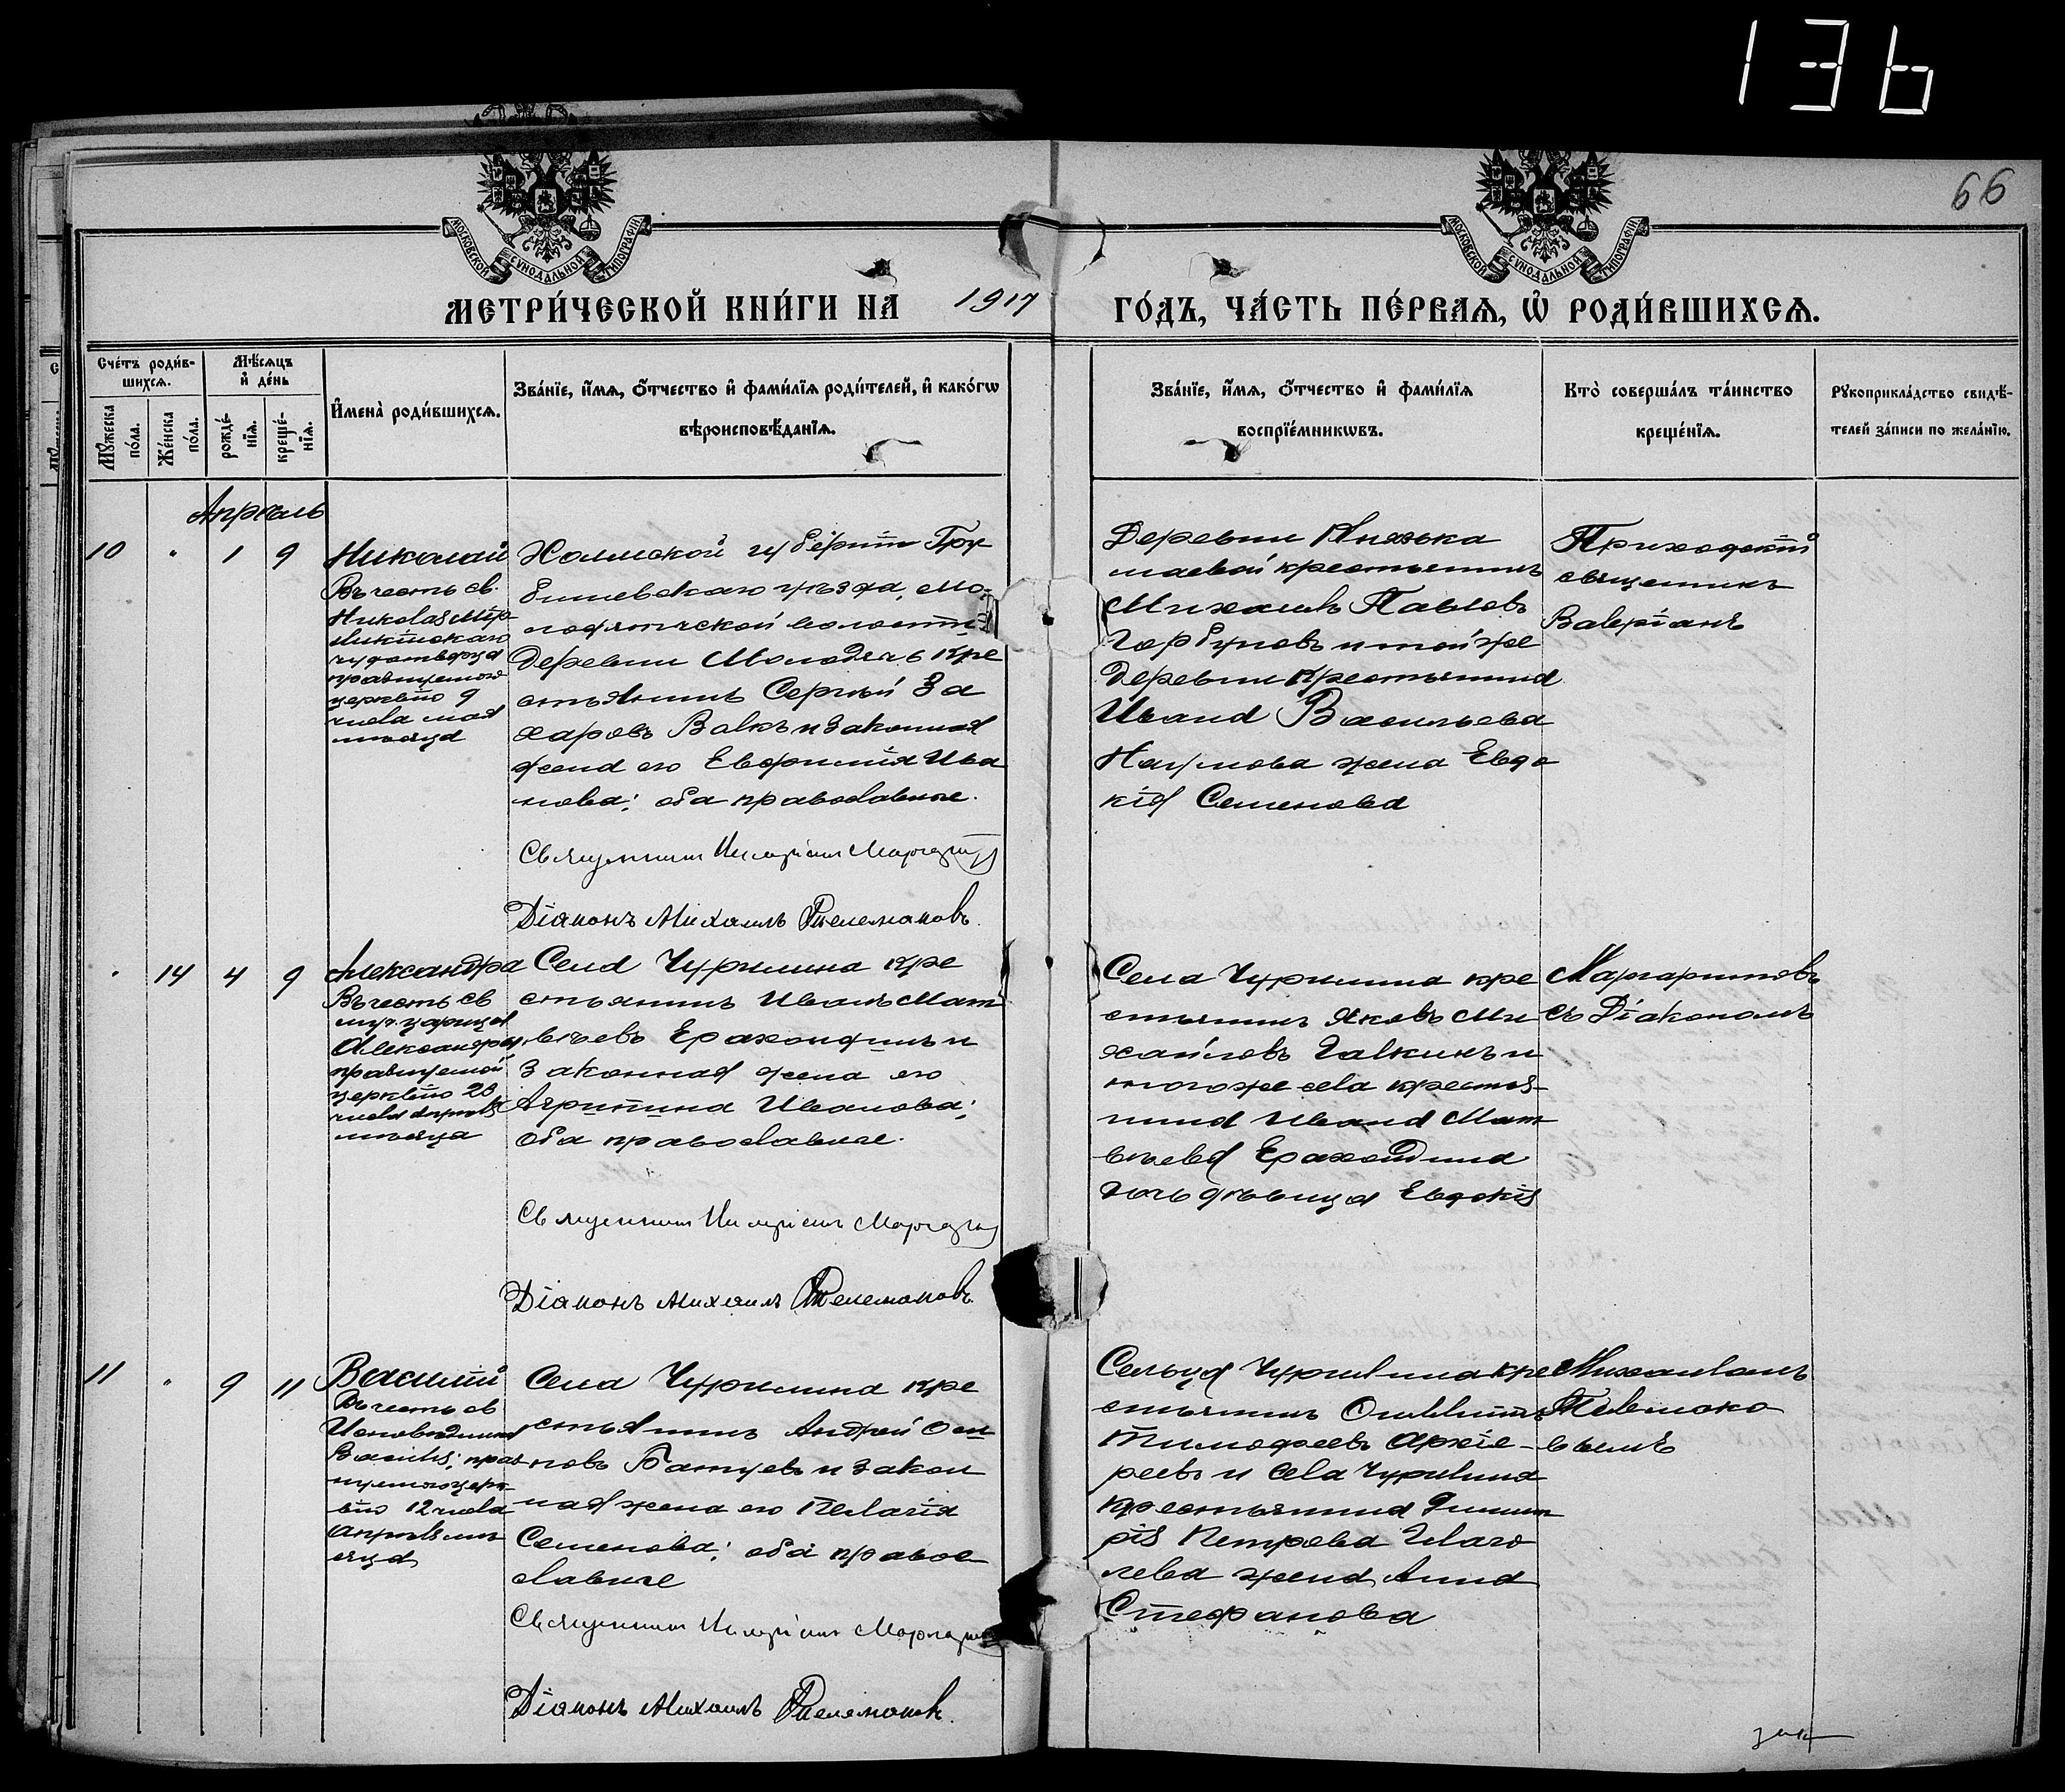 136
66
МОСКОВСКОЙ СѴНОДАЛЬНОЙ ТИПОГРАФІИ
МОСКОВСКОЙ СѴНОДАЛЬНОЙ ТИПОГРАФІИ
МЕТРИ́ЧЕСКОЙ КНИ́ГИ НА 1917 ГО́ДЪ, ЧА́СТЬ ПЕ́РВАѦ, Ѡ҆ РОДИ́ВШИХСѦ.
Сче́тъ роди́в-
шихсѧ.
Мѣ́сѧцъ
и҆ де́нь
Мꙋ́жеска
по́ла.
Же́нска
по́ла.
рожде́-
нїѧ.
креще́-
нїѧ.
И҆мена̀ роди́вшихсѧ.
Зва́нїе, и҆́мѧ, ѻ҆́тчество и҆ фами́лїѧ роди́телей, и҆ како́гѡ
вѣроисповѣ́данїѧ.
Зва́нїе, и҆́мѧ, ѻ҆́тчество и҆ фами́лїѧ
воспрїе́мникѡвъ.
Кто̀ соверша́лъ та́инство
креще́нїѧ.
Рꙋкоприкла́дство свидѣ́-
телей за́писи по жела́нїю.
Апрѣль
10 " 1 9
Николай
Въ честь св.
Николая Мѵр
ликійскаго
чудотворца
празднуемаго
церковію 9
числа мая
мѣсяца
Холмской губерніи Гру
бешевскаго уѣзда, Мо-
лодятичской волости
деревни Молодячъ кре
стьянинъ Сергѣй За
харовъ Валкъ и законная
жена его Евфимія Ива
нова; оба православные.
Священникъ
Діаконъ Михаилъ
Деревни Княжка
маевой крестьянинъ
Михаилъ Павловъ
Горбуновъ и той же
деревни крестьянина
Ивана Васильева
Наумова жена Евдо
кія Семенова
Приходскій
священникъ
Валеріанъ
14 4 9
Александра
Въ честь св
муч. царицы
Александры
празднуемой
церковію 23
числа апрѣля
мѣсяца
Села Чурилина кре
стьянинъ Иванъ Мат
вѣевъ Ерахондинъ и
законная жена его
Агрипина Иванова;
оба православные.
Священникъ
Діаконъ Михаилъ
Села Чурилина кре
стьянинъ Яковъ Ми
хайловъ Галкинъ и
того же села крестья-
нина Ивана Мат
вѣева Ерахондина
дочь дѣвица Евдокія
Маргаритовъ
съ Діакономъ
11 " 9 11
Василій
Въ честь св
Исповѣдника
Василія; праз
нуемаго церк
вію 12 числа
апрѣля мѣ
сяца
Села Чурилина кре
стьянинъ Андрей Оси
повъ Батуевъ и закон
ная жена его Пелагія
Семенова; оба право
славные
Священникъ
Діаконъ Михаилъ
Сельца Чурилина кре
стьянинъ
Тимофеевъ Архіе-
реевъ и села Чурилина
крестьянина Димит
рія Петрова Глаго
лева жена Анна
Стефанова
Михаиломъ